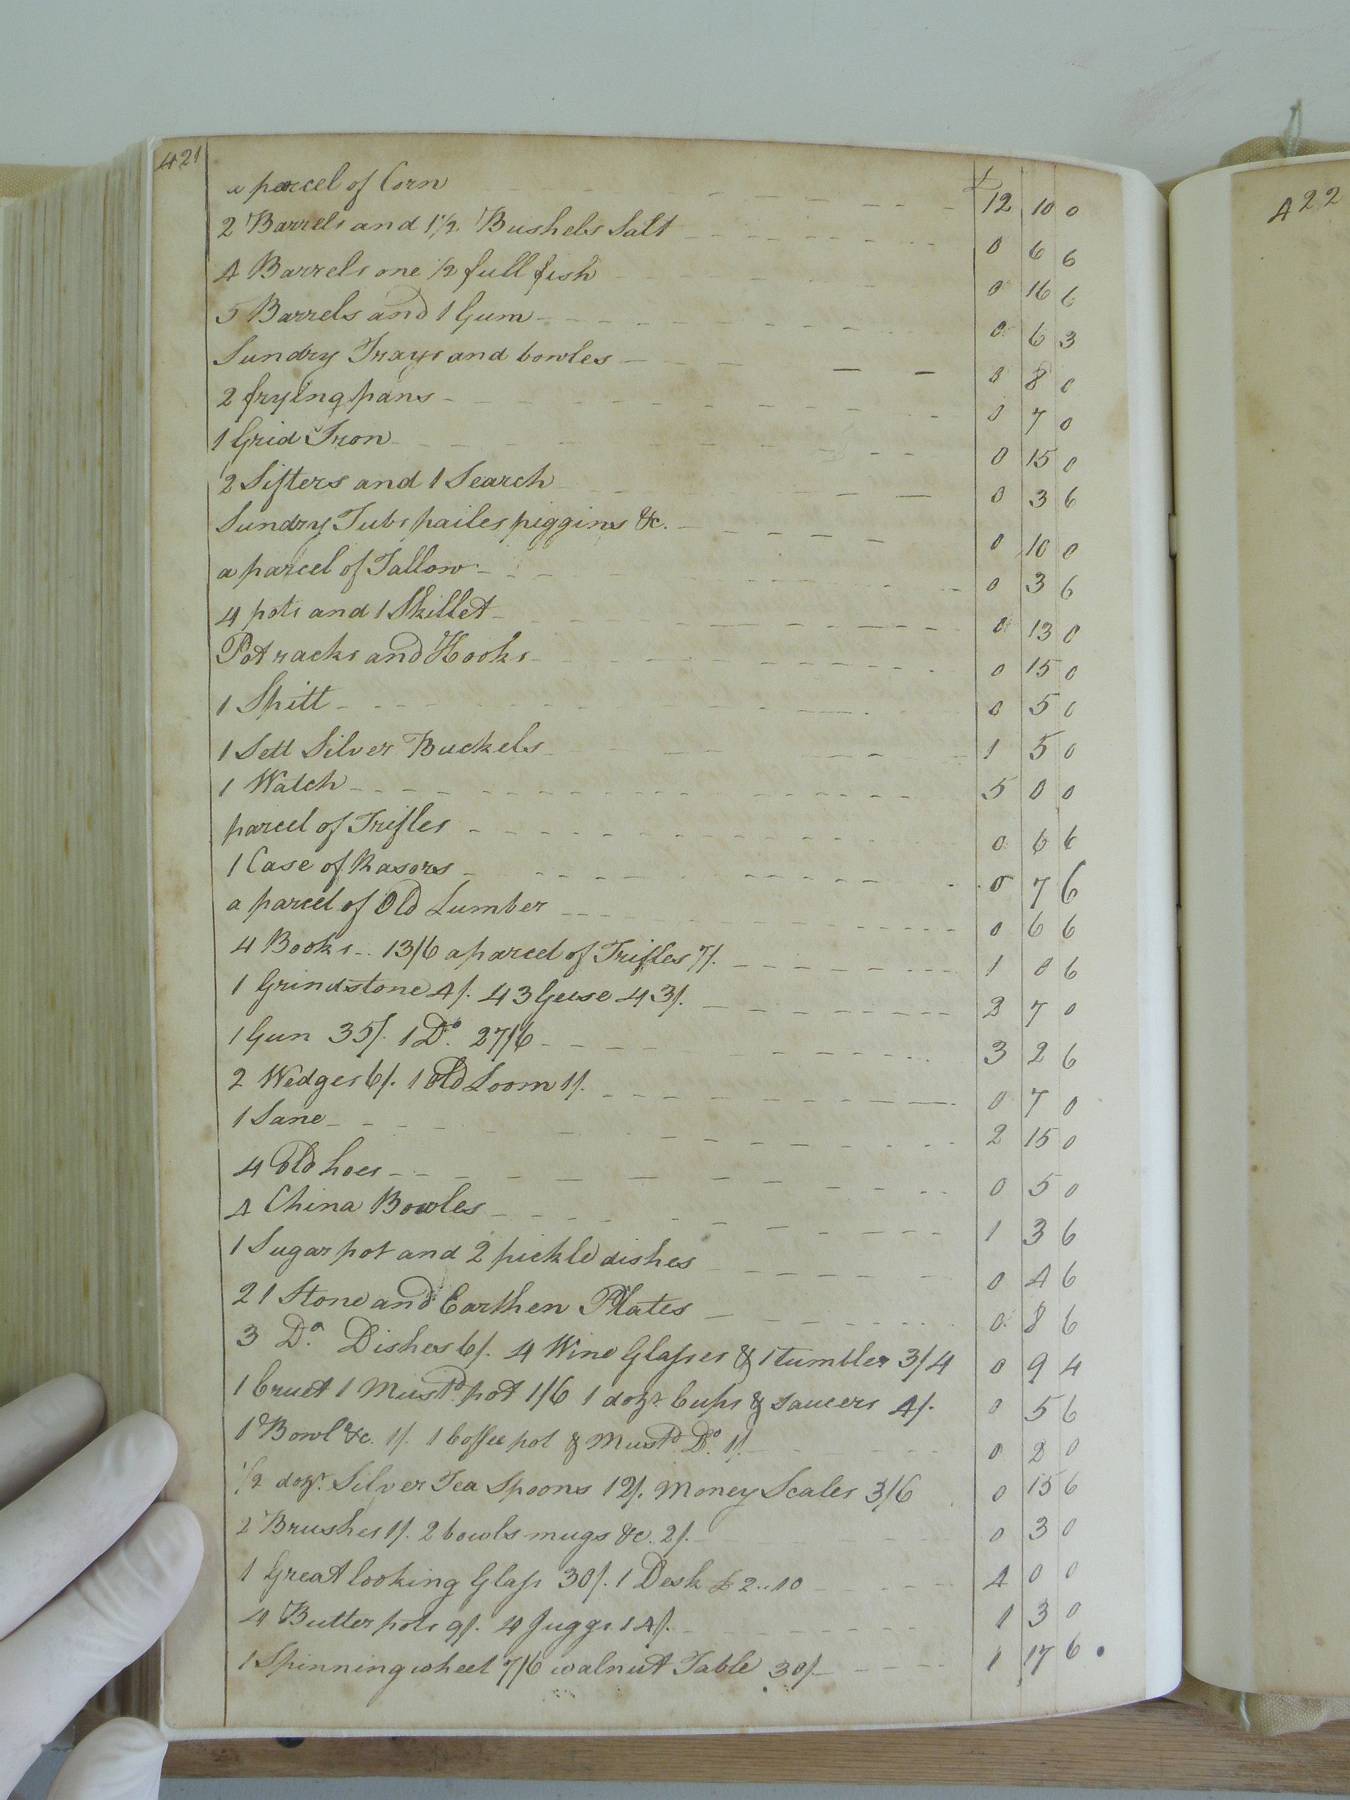 421
£
a parcel of Corn 12 10 0
2 Barrels and 1½ Bushels Salt 0 6 6
4 Barrels one ½ full fish 0 16 6
5 Barrels and 1 Gum 0 6 3
Sundry Trays and bowles 0 8 0
2 frying pans 0 7 0
1 Grid Iron 0 15 0
2 Sifters and 1 Search 0 3 6
Sundry Tubs pailes piggins &c. 0 10 0
a parcel of Tallow 0 3 6
4 pots and 1 Skillet 0 13 0
Pot racks and Hooks 0 15 0
1 Spitt 0 5 0
1 Sett Silver Buckels 1 5 0
1 Watch 5 0 0
parcel of Trifles 0 6 6
1 Case of Rasors 0 7 6
a parcel of Old Lumber 0 6 6
4 Books .. 13/6 a parcel of Trifles 7/. 1 0 6
1 Grindstone 4/. 43 Geese 43/. 2 7 0
1 Gun 35/. 1 Do. 27/6 3 2 6
2 Wedges 6/. 1 Old Loom 1/. 0 7 0
1 Sane 2 15 0
4 Old hoes 0 5 0
4 China Bowles 1 3 6
1 Sugar pot and 2 pickle dishes 0 4 6
21 Stone and Earthen Plates 0 8 6
3 Do. Dishes 6/. 4 Wine Glasses & 1 tumbler 3/4 0 9 4
1 Cruet 1 Mustd. pot 1/6 1 dozn. Cups & Saucers 4/. 0 5 6
1 Bowl &c. 1/. 1 Coffee pot & Mustd. Do. 1/. 0 2 0
½ dozn. Silver Tea Spoons 12/. Money Scales 3/6 0 15 6
2 Brushes 1/. 2 bowls mugs &c. 2/. 0 3 0
1 Great looking Glass 30/. 1 Desk £2..10 4 0 0
4 Butter pots 9/. 4 Juggs 14/. 1 3 0
1 Spinning wheel 7/6 walnut Table 30/ 1 17 6
422